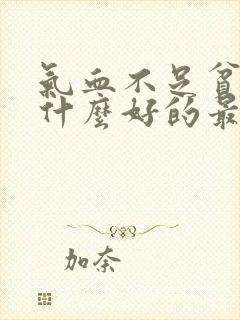 氣血不足貧
什麼好的最
加奈